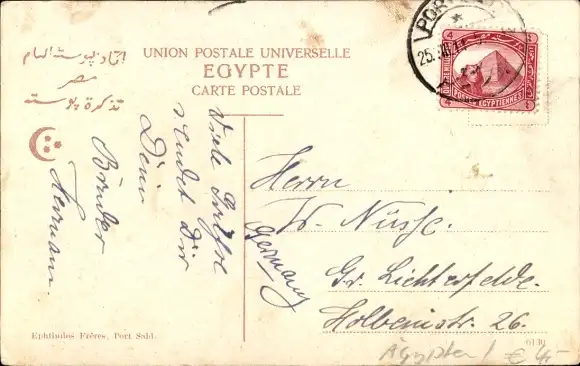 اتحاد پوسته العام
مصر
تذكرة پوسته
UNION POSTALE UNIVERSELLE
EGYPTE
CARTE POSTALE
PORT
25. XII
4 4
POSTES EGYPTIENNES
Viele Grüße
sendet Dir
Dein
Bruder
Hermann.
Germany
Herrn
W. Nusse.
Gr. Lichterfelde.
Holbeinstr. 26.
Ephtimios Frères, Port Saïd.
6130
Ägypten / € 4,-